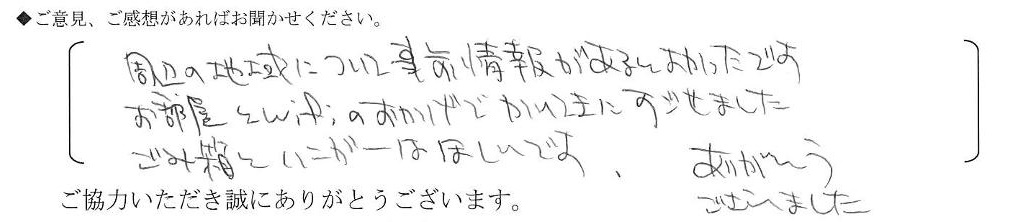 ◆ご意見、ご感想があればお聞かせください。
周辺の地域について事前情報があるとよかったです
お部屋とwifiのおかげでかいてきにすごせました
ごみ箱と ほしいです
ありがとう
ございました
ご協力いただき誠にありがとうございます。